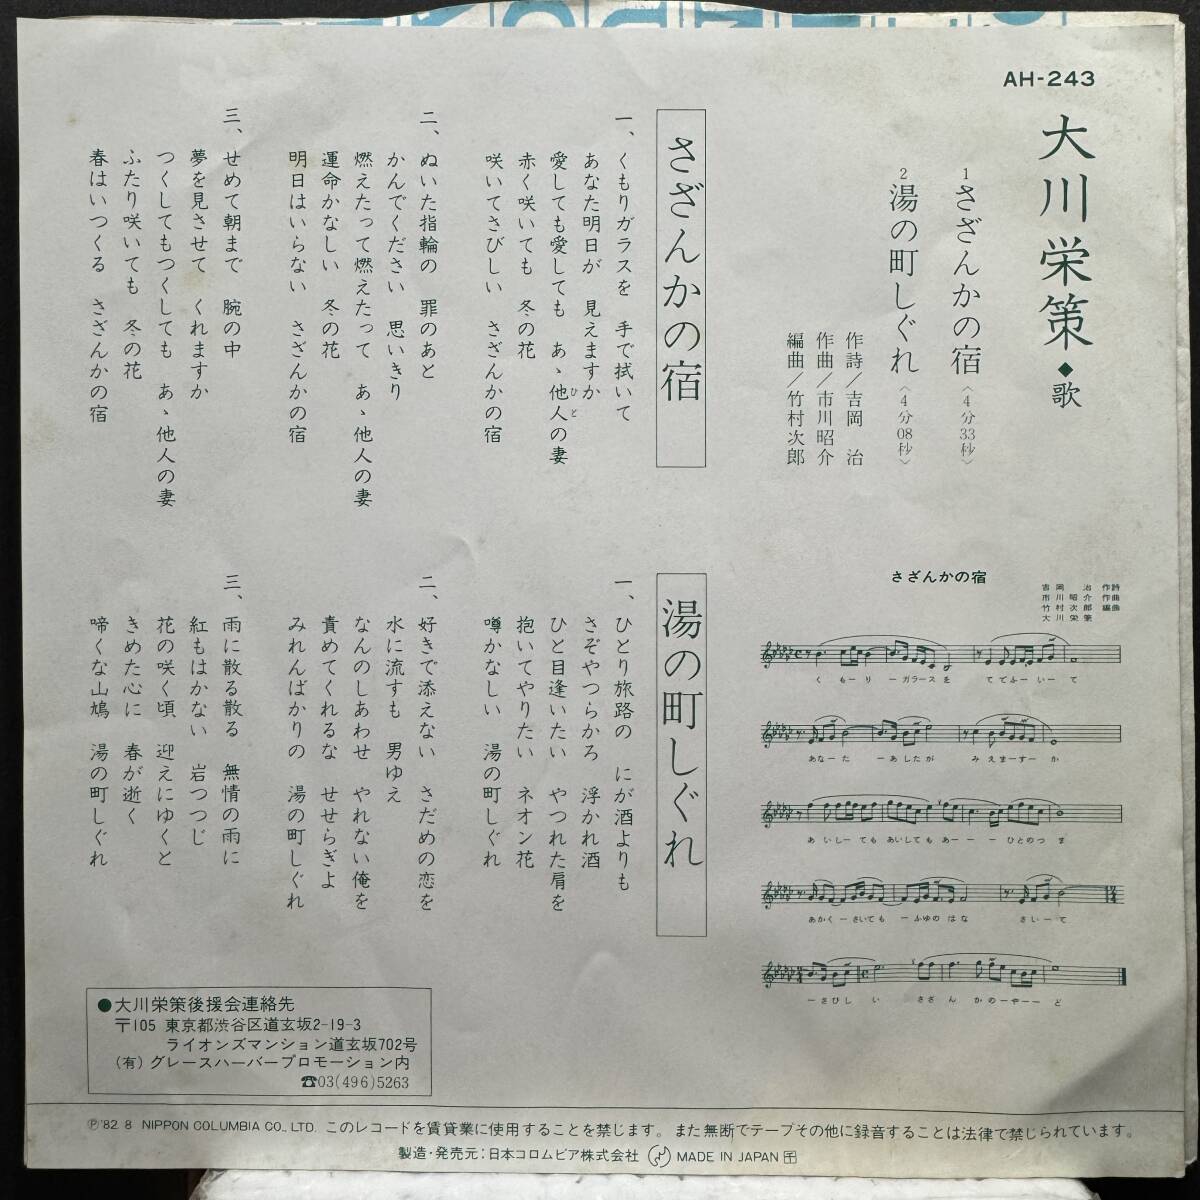 AH-243
大川栄策◆歌
1 さざんかの宿〈4分33秒〉
2 湯の町しぐれ〈4分08秒〉
作詩／吉岡 治
作曲／市川昭介
編曲／竹村次郎
さざんかの宿
一、くもりガラスを 手で拭いて
あなた明日が 見えますか
愛しても愛しても あゝ他人の妻
ひと
赤く咲いても 冬の花
咲いてさびしい さざんかの宿
二、ぬいた指輪の 罪のあと
かんでください 思いきり
燃えたって燃えたって あゝ他人の妻
運命かなしい 冬の花
明日はいらない さざんかの宿
三、せめて朝まで 腕の中
夢を見させて くれますか
つくしてもつくしても あゝ他人の妻
ふたり咲いても 冬の花
春はいつくる さざんかの宿
さざんかの宿
吉岡 治 作詩
市川昭介 作曲
竹村次郎 編曲
大川栄策
く もーり ーガラース を てでふー いー て
あなーた ーあしたが みえまーすー か
あ いしー ても あいしても あー ー ー ひとのつ ま
あかくーさいても ーふゆの はな さいーて
ーさびし い さざ ん かのーやーー ど
湯の町しぐれ
一、ひとり旅路の にが酒よりも
さぞやつらかろ 浮かれ酒
ひと目逢いたい やつれた肩を
抱いてやりたい ネオン花
噂かなしい 湯の町しぐれ
二、好きで添えない さだめの恋を
水に流すも 男ゆえ
なんのしあわせ やれない俺を
責めてくれるな せせらぎよ
みれんばかりの 湯の町しぐれ
三、雨に散る散る 無情の雨に
紅もはかない 岩つつじ
花の咲く頃 迎えにゆくと
きめた心に 春が逝く
啼くな山鳩 湯の町しぐれ
●大川栄策後援会連絡先
〒105 東京都渋谷区道玄坂2-19-3
ライオンズマンション道玄坂702号
(有)グレースハーバープロモーション内
☎03(496)5263
Ⓟ'82.8 NIPPON COLUMBIA CO., LTD. このレコードを賃貸業に使用することを禁じます。また無断でテープその他に録音することは法律で禁じられています。
製造・発売元：日本コロムビア株式会社 MADE IN JAPAN